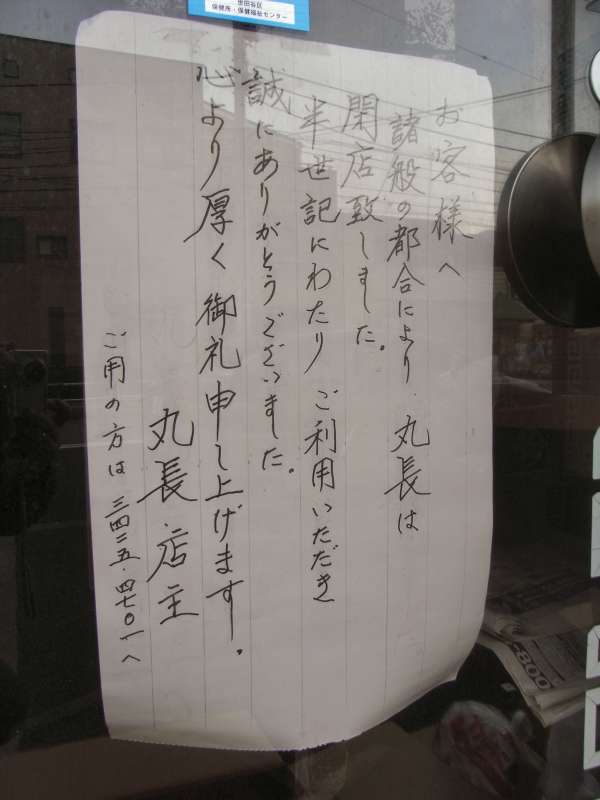 世田谷区
保健所・保健福祉センター
お客様へ
諸般の都合により、丸長は
閉店致しました。
半世記にわたりご利用いただき
誠にありがとうございました。
心より厚く御礼申し上げます。
丸長.店主
ご用の方は三四二五.四七〇一へ
800